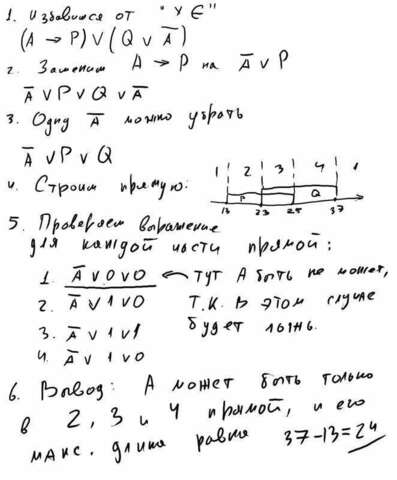 1. избавимся от "x ∈"
(A → P) ∨ (Q ∨ A̅)
2. Заменим A → P на A̅ ∨ P
A̅ ∨ P ∨ Q ∨ A̅
3. Одну A̅ можно убрать
A̅ ∨ P ∨ Q
4. Строим прямую:
1 2 3 4 1
P Q
13 23 25 37
5. Проверяем выражение
для каждой части прямой:
1. A̅ ∨ 0 ∨ 0 ← тут A быть не может,
2. A̅ ∨ 1 ∨ 0 т.к. в этом случае
3. A̅ ∨ 1 ∨ 1 будет ложь.
4. A̅ ∨ 1 ∨ 0
6. Вывод: A может быть только
в 2, 3 и 4 прямой, и его
макс. длина равна 37-13=24